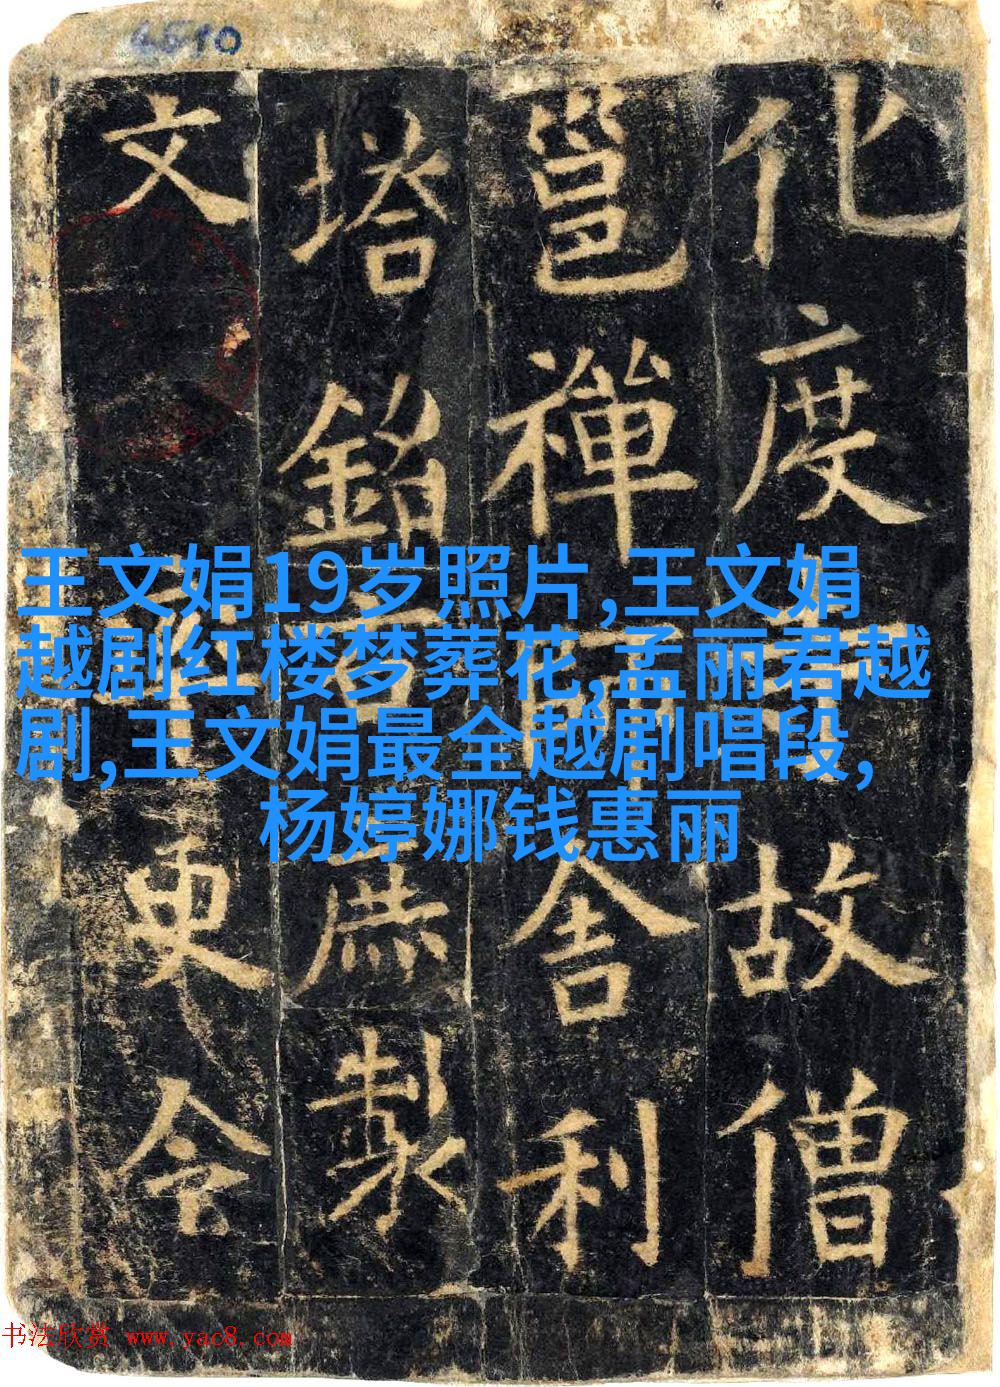 化度故僧
邕禪舍利
塔銘庶製
文更令
王文娟19岁照片,王文娟
越剧红楼梦葬花,孟丽君越
剧,王文娟最全越剧唱段,
杨婷娜钱惠丽
书法欣赏 www.yac8.com